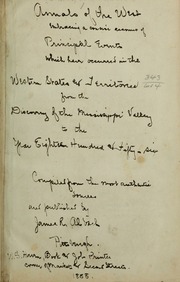 Annals of the West
Embracing a concise account of
Principal Events
which have occurred in the
Western States & Territories
from the
Discovery of the Mississippi Valley
to the
Year Eighteen Hundred & Fifty six
Compiled from the most authentic
sources
and published by
James R. Albach
Pittsburgh.
W. S. Haven, Book & Job Printer
corner of Market & Second Streets.
1858.